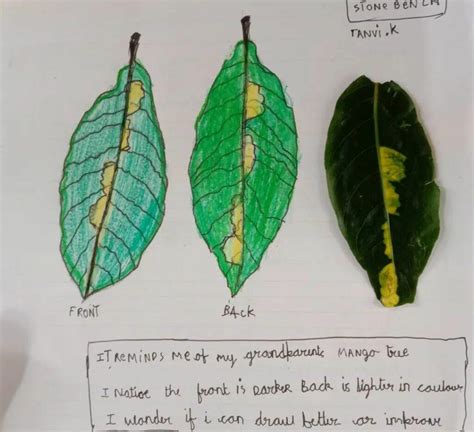 STONE BENCH
TANVI.K
FRONT
BACK
IT REMINDS ME of my grandparents MANGO tree
I Notice the front is Darker Back is lighter in coulour
I wonder if i can draw better or improve